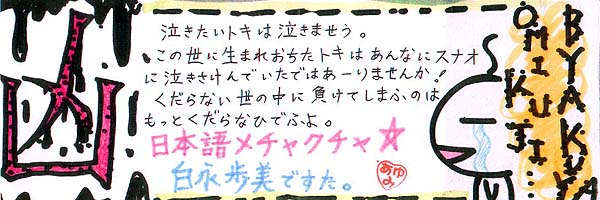 凶
泣きたいトキは泣きませう。
この世に生まれおちたトキはあんなにスナオ
に泣きさけんでいたではあーりませんか!
くだらない世の中に負けてしまふのは
もっとくだらなひでふよ。
日本語メチャクチャ☆
白永歩美ですた。
あゆみ
BYAKUYA
OMIKUJI...